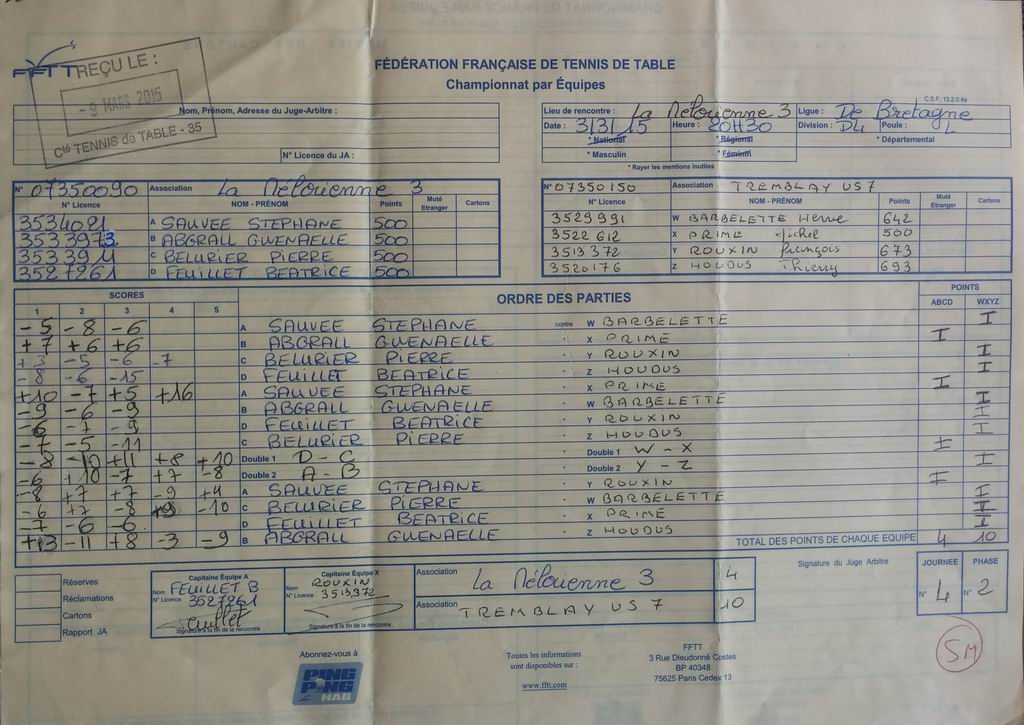 FÉDÉRATION FRANÇAISE DE TENNIS DE TABLE
Championnat par Équipes
FFTT REÇU LE :
- 9 MARS 2015
Cté TENNIS de TABLE - 35
Nom, Prénom, Adresse du Juge-Arbitre :
N° Licence du JA :
C.S.F. 13.2.0.4a
Lieu de rencontre : La Mélorienne 3 Ligue : De Bretagne
Date : 3/3/15 Heure : 20H30 Division : D4 Poule : L
* National * Régional * Départemental
* Masculin * Féminin
* Rayer les mentions inutiles
N° 07350090 Association La Mélorienne 3
N° Licence NOM - PRÉNOM Points Muté Etranger Cartons
3534091 A SAUVEE STEPHANE 500
3533973 B ABGRALL GWENAELLE 500
3533911 C BELURIER PIERRE 500
3527261 D FEUILLET BEATRICE 500
N° 07350150 Association TREMBLAY US 7
N° Licence NOM - PRÉNOM Points Muté Etranger Cartons
3529991 W BARBELETTE Herve 642
3522612 X PRIME Michel 500
3513372 Y ROUXIN François 673
3520176 Z HOUDUS Thierry 693
SCORES ORDRE DES PARTIES POINTS
1 2 3 4 5 ABCD WXYZ
-5 -8 -6 A SAUVEE STEPHANE contre W BARBELETTE I
+7 +6 +6 B ABGRALL GWENAELLE X PRIME I
+3 -5 -6 -7 C BELURIER PIERRE Y ROUXIN I
-8 -6 -15 D FEUILLET BEATRICE Z HOUDUS I
+10 -7 +5 +16 A SAUVEE STEPHANE X PRIME I
-9 -6 -9 B ABGRALL GWENAELLE W BARBELETTE I
-6 -7 -9 D FEUILLET BEATRICE Y ROUXIN I
-7 -5 -11 C BELURIER PIERRE Z HOUDUS I
-8 -10 +11 +8 +10 Double 1 D - C Double 1 W - X I
-6 +10 -7 +7 -8 Double 2 A - B Double 2 Y - Z I
-8 +7 +7 -9 +4 A SAUVEE STEPHANE Y ROUXIN I
-6 +7 -8 +9 -10 C BELURIER PIERRE W BARBELETTE I
-7 -6 -6 D FEUILLET BEATRICE X PRIME I
+13 -11 +8 -3 -9 B ABGRALL GWENAELLE Z HOUDUS I
TOTAL DES POINTS DE CHAQUE EQUIPE 4 10
Réserves
Réclamations
Cartons
Rapport JA
Capitaine Équipe A
Nom FEUILLET B
N° Licence 3527261
Signature à la fin de la rencontre
Capitaine Équipe X
Nom ROUXIN
N° Licence 3513372
Signature à la fin de la rencontre
Association La Mélorienne 3 4
Association TREMBLAY US 7 10
Signature du Juge Arbitre
JOURNEE PHASE
N° 4 N° 2
SM
Abonnez-vous à
PING PONG MAG
Toutes les informations
sont disponibles sur :
www.fftt.com
FFTT
3 Rue Dieudonné Costes
BP 40348
75625 Paris Cedex 13